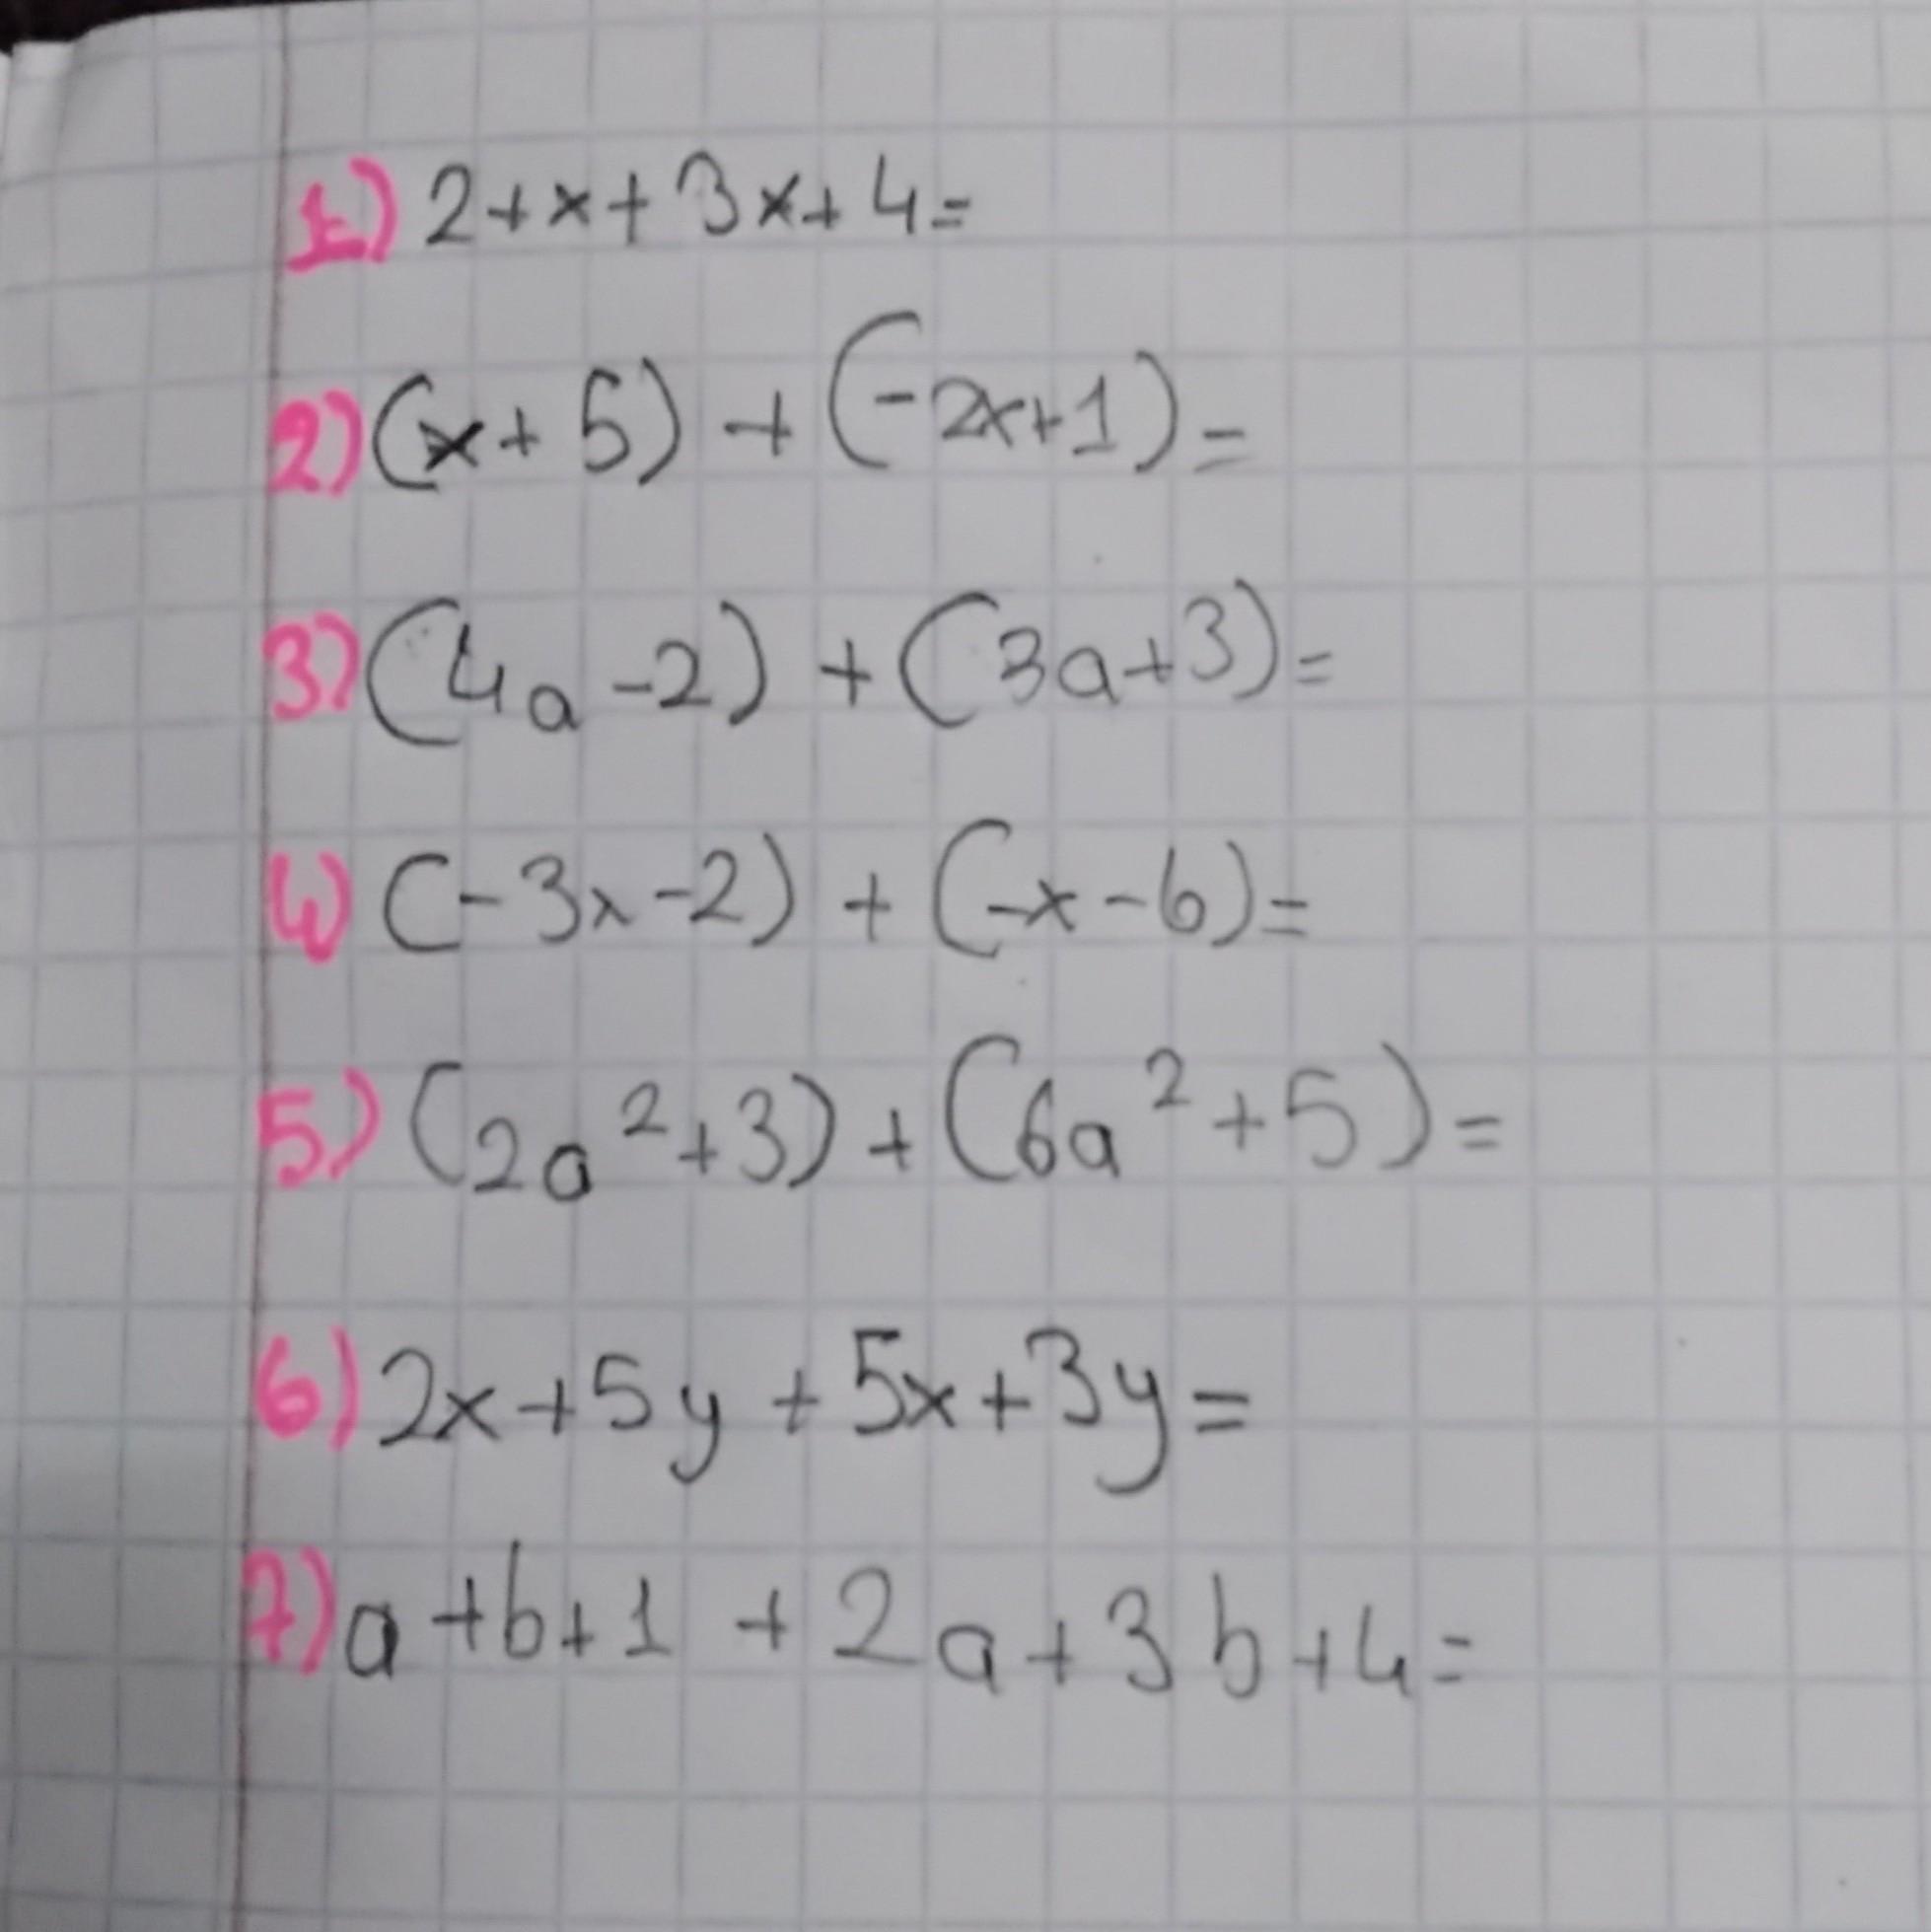 1) 2+x+3x+4=
2) (x+5)+(-2x+1)=
3) (4a-2)+(3a+3)=
4) (-3x-2)+(-x-6)=
5) (2a²+3)+(6a²+5)=
6) 2x+5y+5x+3y=
7) a+b+1+2a+3b+4=